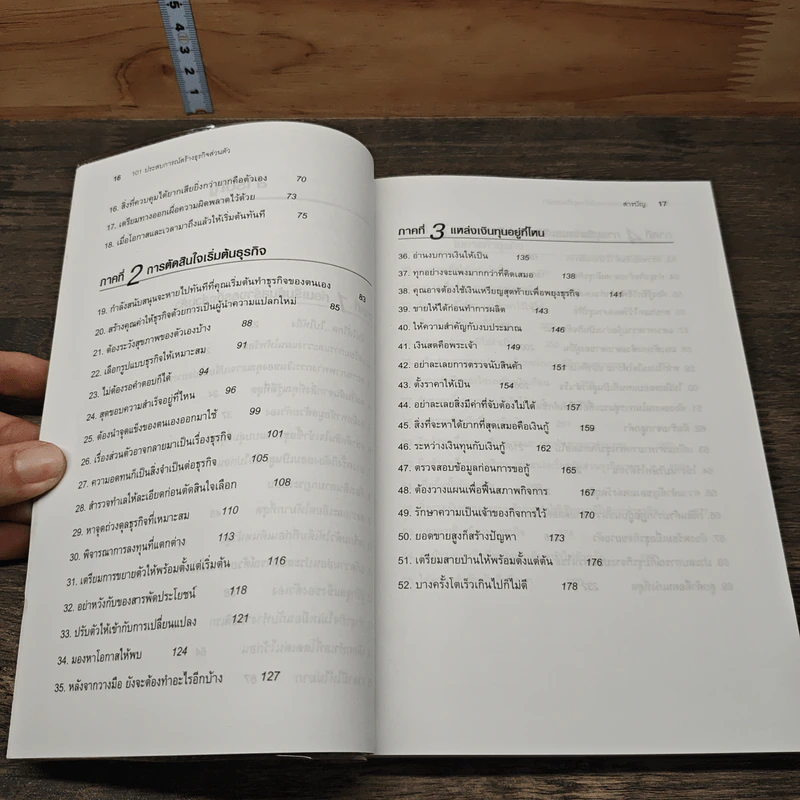 5
4
3
2
1
16 101 ประสบการณ์สร้างธุรกิจส่วนตัว
16. สิ่งที่ควบคุมได้ยากเสียยิ่งกว่ายากคือตัวเอง 70
17. เตรียมทางออกเผื่อความผิดพลาดไว้ด้วย 73
18. เมื่อโอกาสและเวลามาถึงแล้วให้เริ่มต้นทันที 75
ภาคที่ 2 การตัดสินใจเริ่มต้นธุรกิจ
19. กำลังสนับสนุนจะหายไปทันทีที่คุณเริ่มต้นทำธุรกิจของตนเอง 83
20. สร้างคุณค่าให้ธุรกิจด้วยการเป็นผู้นำความแปลกใหม่ 85
21. ต้องระวังสุขภาพของตัวเองบ้าง 88
22. เลือกรูปแบบธุรกิจให้เหมาะสม 91
23. ไม่ต้องรอคำตอบก็ได้ 94
24. สุดขอบความสำเร็จอยู่ที่ไหน 96
25. ต้องนำจุดแข็งของตนเองออกมาใช้ 99
26. เรื่องส่วนตัวอาจกลายมาเป็นเรื่องธุรกิจ 101
27. ความอดทนก็เป็นสิ่งจำเป็นต่อธุรกิจ 105
28. สำรวจทำเลให้ละเอียดก่อนตัดสินใจเลือก 108
29. หาจุดถ่วงดุลธุรกิจที่เหมาะสม 110
30. พิจารณาการลงทุนที่แตกต่าง 113
31. เตรียมการขยายตัวให้พร้อมตั้งแต่เริ่มต้น 116
32. อย่าหวังกับของสารพัดประโยชน์ 118
33. ปรับตัวให้เข้ากับการเปลี่ยนแปลง 121
34. มองหาโอกาสให้พบ 124
35. หลังจากวางมือ ยังจะต้องทำอะไรอีกบ้าง 127
สารบัญ 17
ภาคที่ 3 แหล่งเงินทุนอยู่ที่ไหน
36. อ่านงบการเงินให้เป็น 135
37. ทุกอย่างจะแพงมากกว่าที่คิดเสมอ 138
38. คุณอาจต้องใช้เงินเหรียญสุดท้ายเพื่อพยุงธุรกิจ 141
39. ขายให้ได้ก่อนทำการผลิต 143
40. ให้ความสำคัญกับงบประมาณ 146
41. เงินสดคือพระเจ้า 149
42. อย่าละเลยการตรวจนับสินค้า 151
43. ตั้งราคาให้เป็น 154
44. อย่าละเลยสิ่งมีค่าที่จับต้องไม่ได้ 157
45. สิ่งที่จะหาได้ยากที่สุดเสมอคือเงินกู้ 159
46. ระหว่างเงินทุนกับเงินกู้ 162
47. ตรวจสอบข้อมูลก่อนการขอกู้ 165
48. ต้องวางแผนเพื่อฟื้นสภาพกิจการ 167
49. รักษาความเป็นเจ้าของกิจการไว้ 170
50. ยอดขายสูงก็สร้างปัญหา 173
51. เตรียมสายป่านให้พร้อมตั้งแต่ต้น 176
52. บางครั้งโตเร็วเกินไปก็ไม่ดี 178